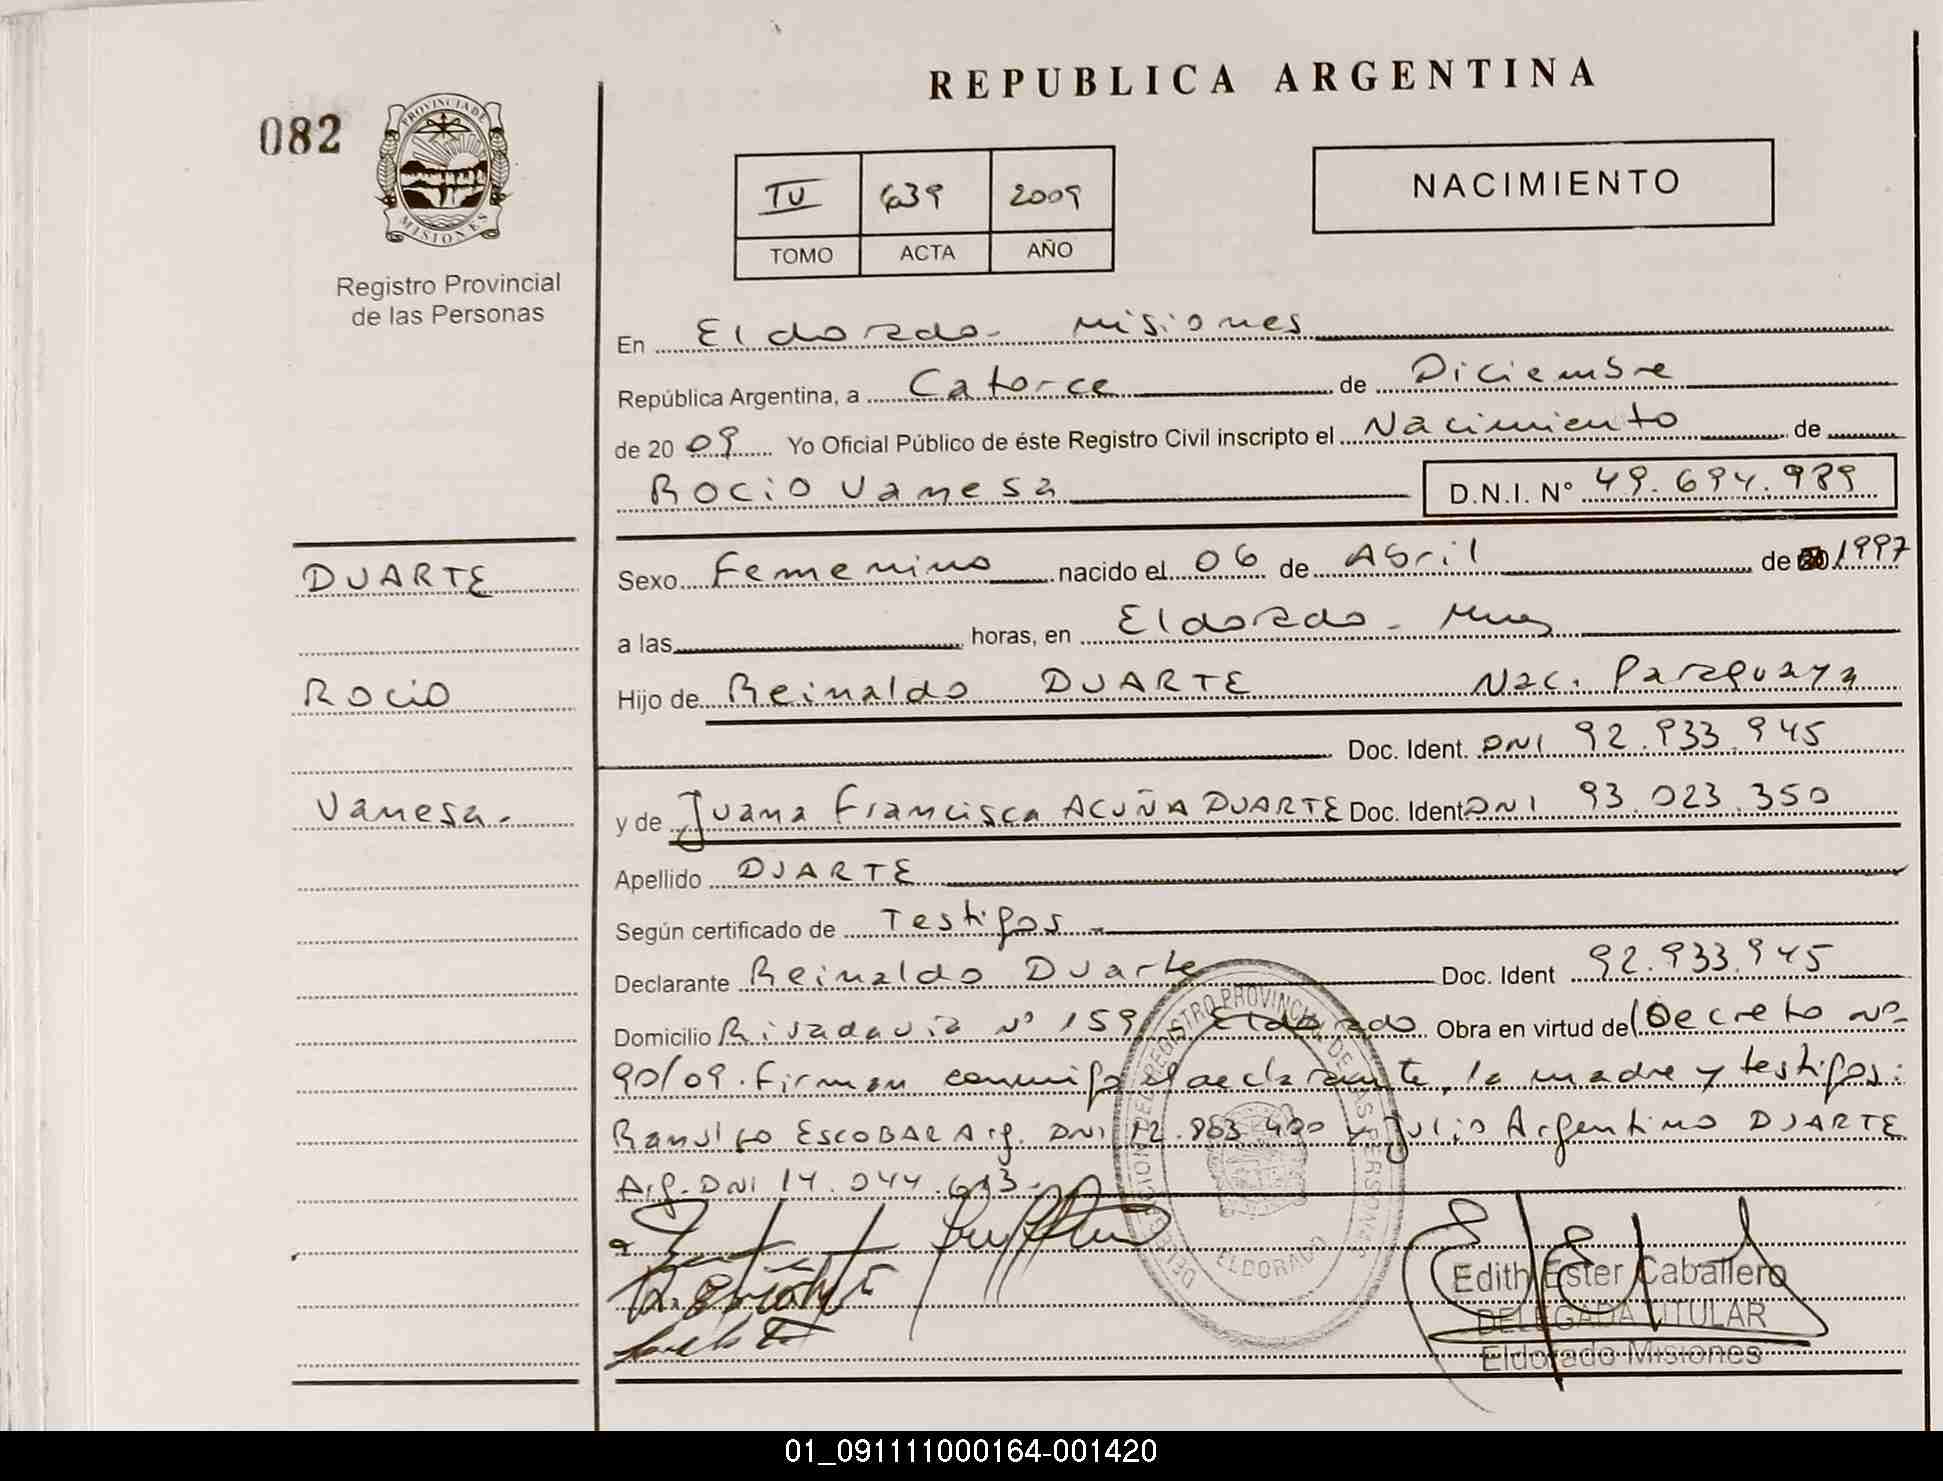 REPUBLICA ARGENTINA
082
PROVINCIA DE MISIONES
Registro Provincial
de las Personas
IV 639 2009
TOMO ACTA AÑO
NACIMIENTO
En Eldorado - Misiones
República Argentina, a Catorce de Diciembre
de 20 09 Yo Oficial Público de éste Registro Civil inscripto el Nacimiento de
Rocio Vanesa D.N.I. Nº 49.694.989
Sexo Femenino nacido el 06 de Abril de 1997
a las horas, en Eldorado - Mnes
Hijo de Reinaldo DUARTE Nac. Paraguaya
Doc. Ident. DNI 92.933.945
y de Juana Francisca ACUÑA DUARTE Doc. Ident DNI 93.023.350
Apellido DUARTE
Según certificado de Testigos -
Declarante Reinaldo Duarte Doc. Ident 92.933.945
Domicilio Rivadavia Nº 159 Eldorado Obra en virtud de Decreto Nº
90/09. Firman conmigo el declarante, la madre y testigos:
Ramsigo ESCOBAR Arg. DNI 12.863.400 y Julio Argentino DUARTE
Arg. DNI 14.044.613.
DUARTE
Rocio
Vanesa.
DELEGACION DEL REGISTRO PROVINCIAL DE LAS PERSONAS
ELDORADO
Edith Ester Caballero
DELEGADA TITULAR
Eldorado Misiones
01_091111000164-001420